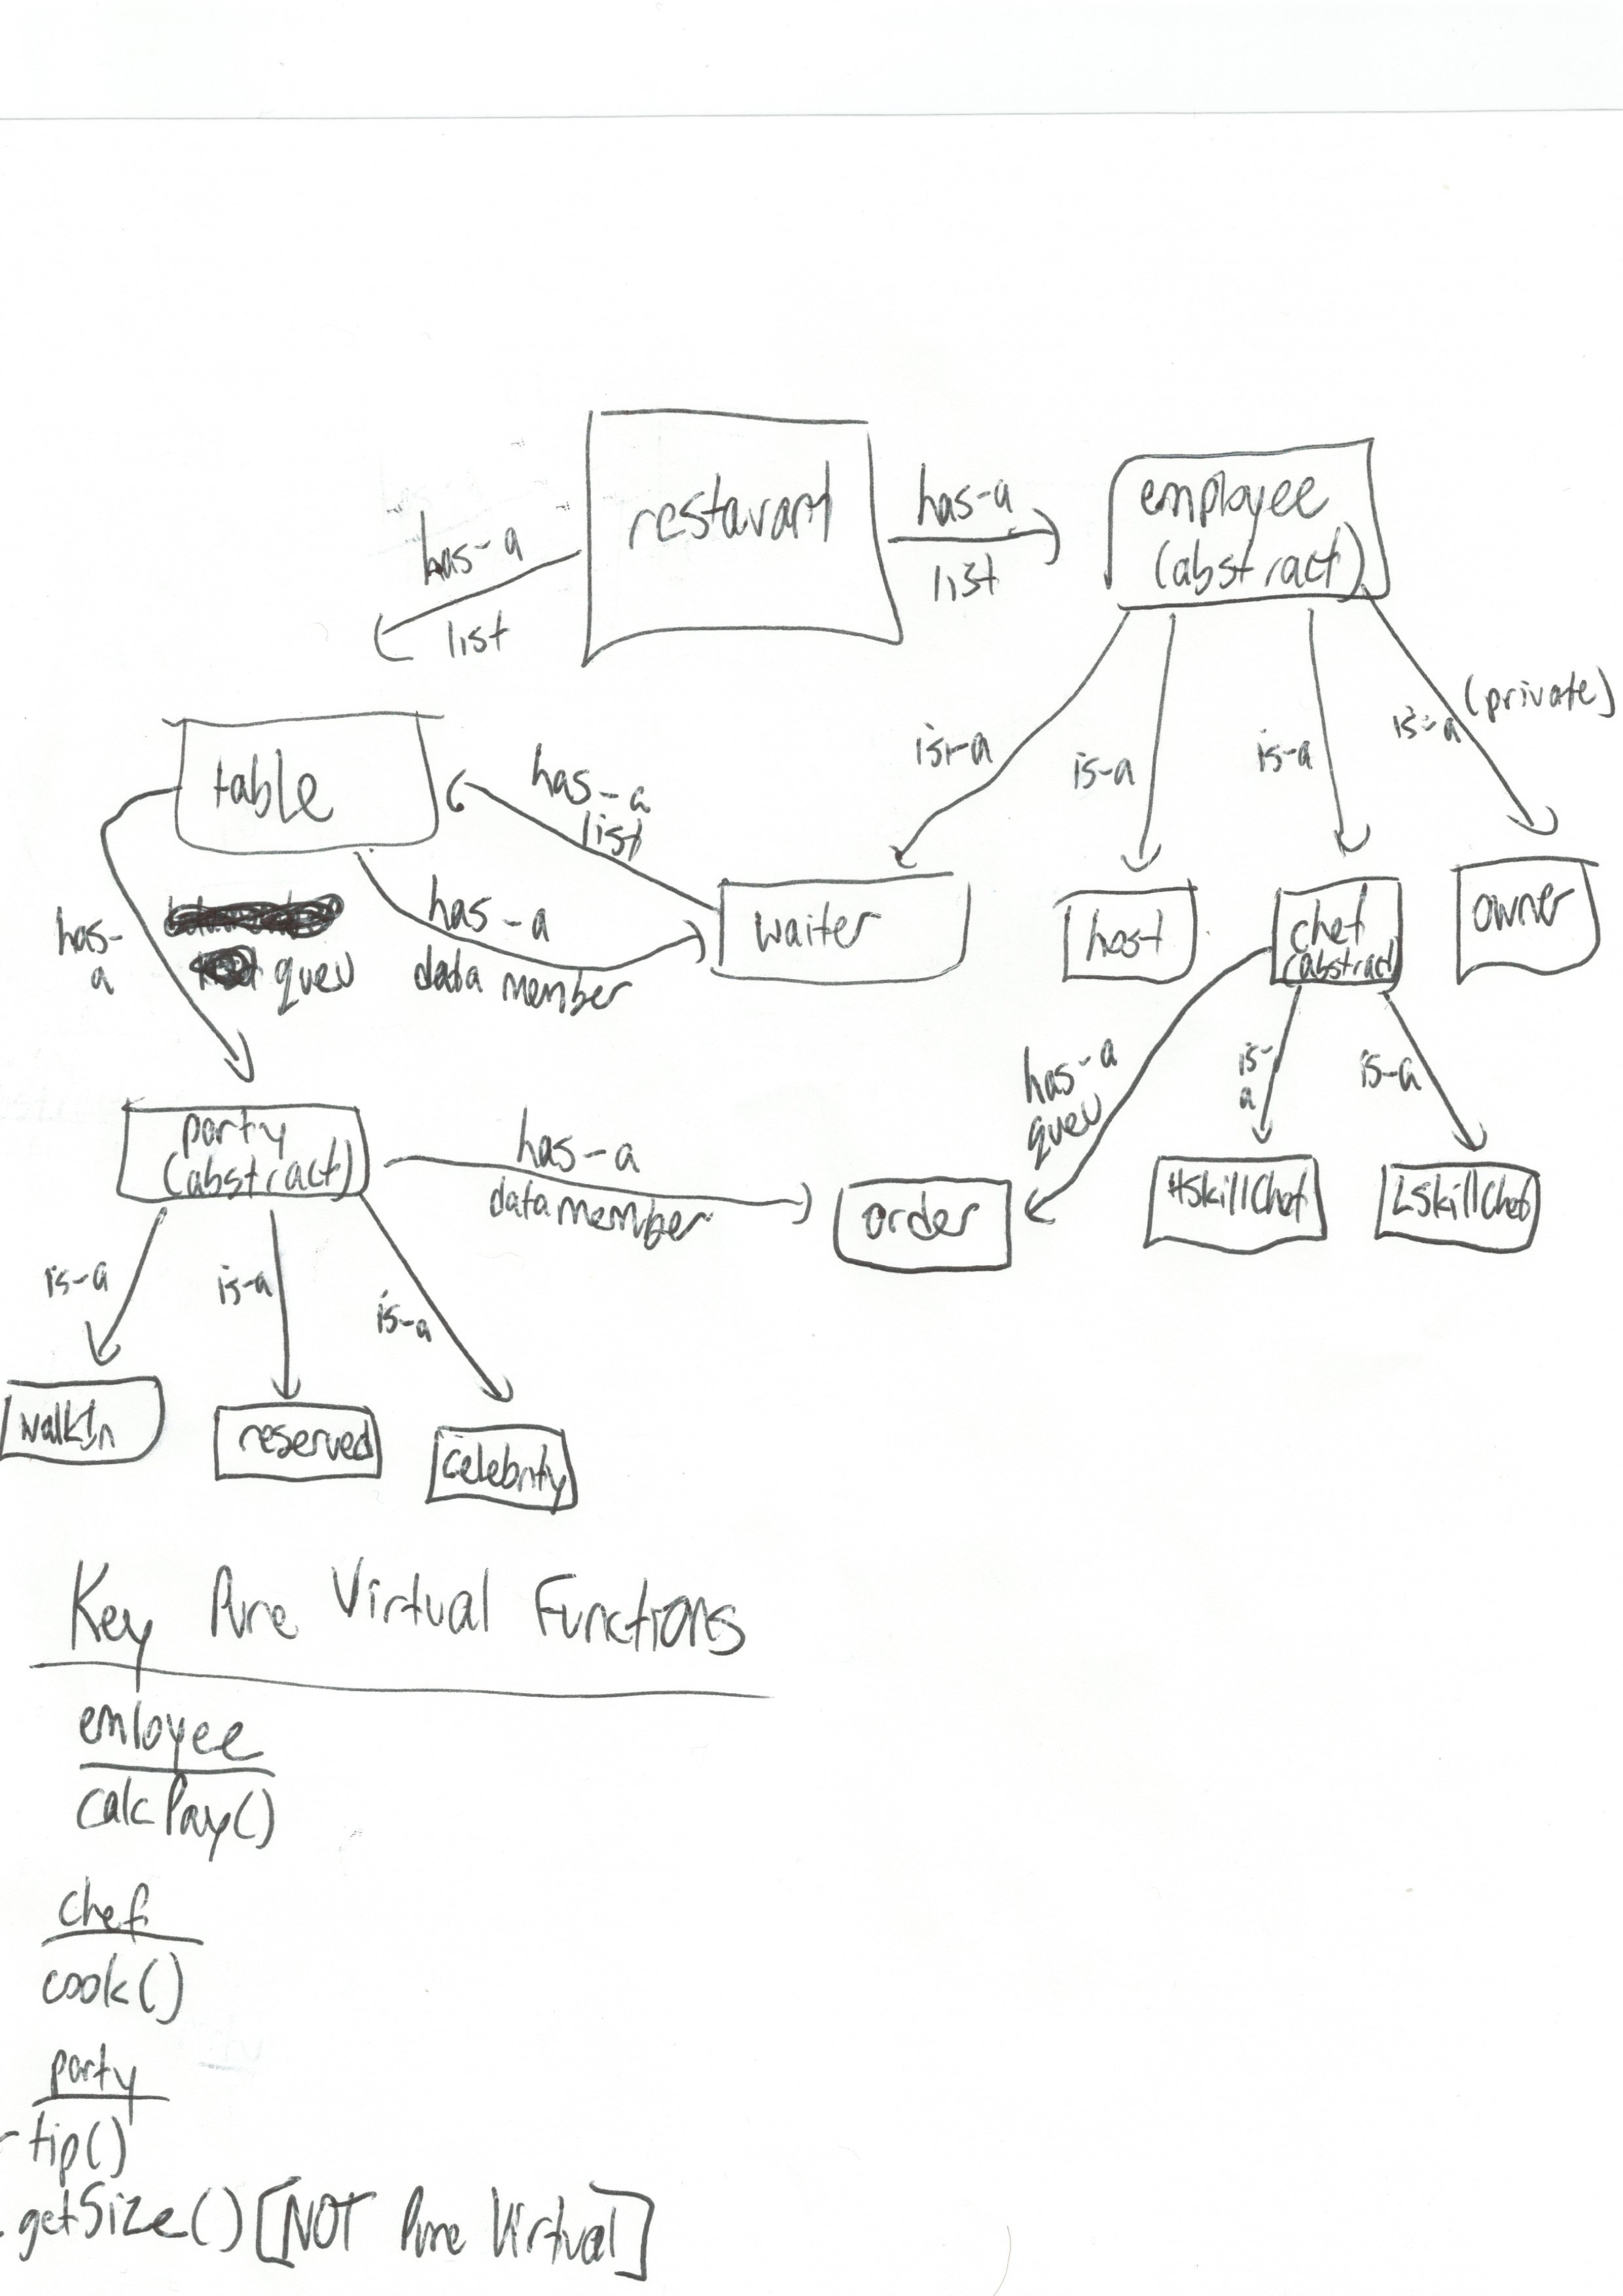 restaurant
has-a
list
has-a
list
employee
(abstract)
is-a
is-a
is-a
is-a
(private)
table
has-a
list
has-a
data member
has-
a
queu
waiter
host
chef
(abstract)
owner
has-a
queu
is-
a
is-a
party
(abstract)
has-a
datamember
order
HSkillChef
LSkillChef
is-a
is-a
is-a
walkIn
reserved
celebrity
Key Pure Virtual Functions
emloyee
calcPay()
chef
cook()
party
- tip()
- getSize() [NOT Pure Virtual]